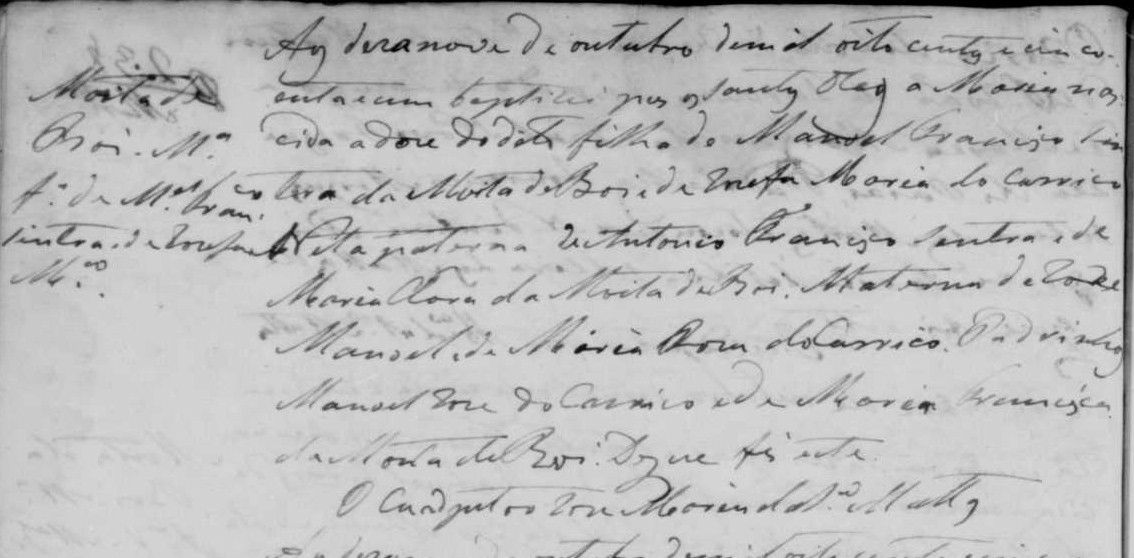 Moita de
Boi. M.ª
f.ª de M.el Fran.co
Sintra e de Josefa
M.ª
Aos deranove de outubro demil oito centos e cinco-
entaeum baptizei pus os santos Oleos a Maria nas-
cida a doze do dito filha de Manoel Francisco Sin
tra da Moita de Boi e de Josefa Maria do Carrico
Neta paterna de Antonio Francisco Sentra e de
Maria Clara da Moita de Boi. Materna de José
Manoel e de Maria Roza do Carrico. Padrinhos
Manoel Jose do Carrico e de Maria Francisca
da Moita de Boi. Deque fis este.
O Coadjutor Jose Maria da S.ª Mattos